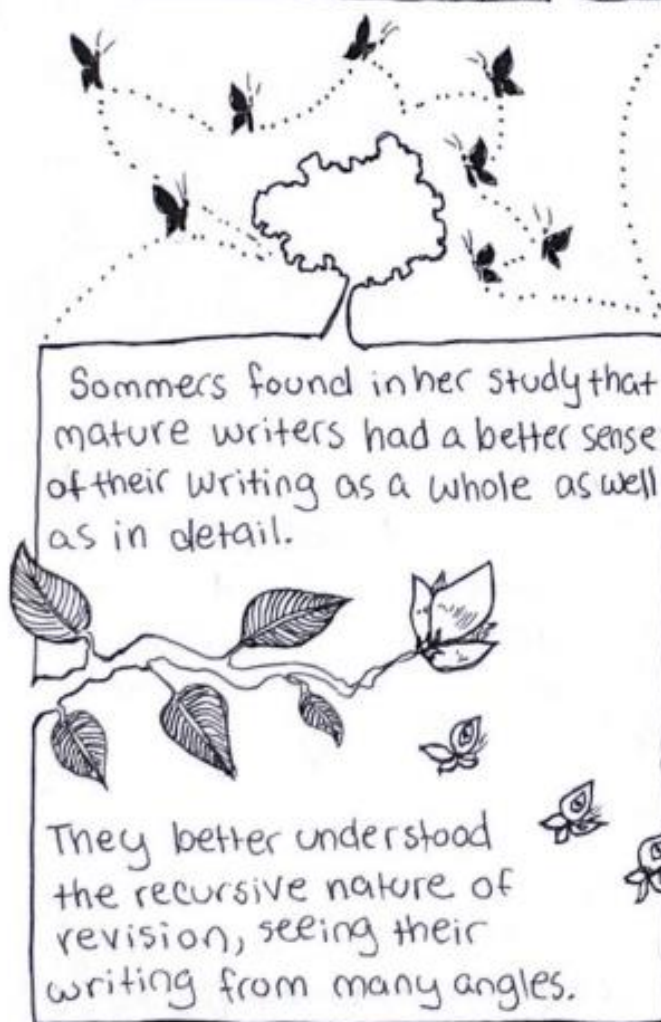 Sommers found in her study that
mature writers had a better sense
of their writing as a whole as well
as in detail.
They better understood
the recursive nature of
revision, seeing their
writing from many angles.